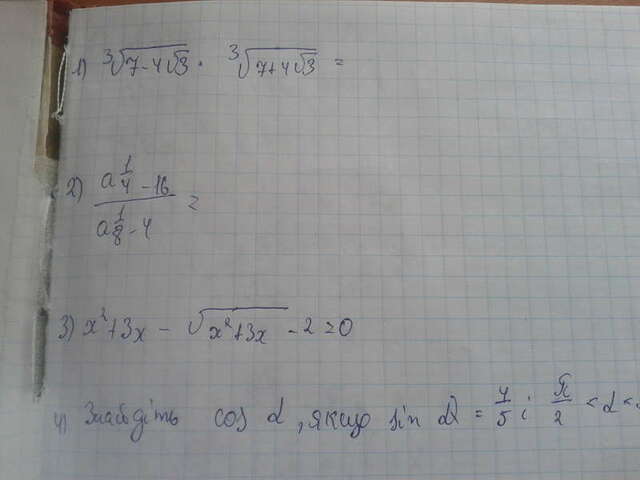 1) ∛(7-4√3) · ∛(7+4√3) =
2) (a^(1/4) - 16)/(a^(1/8) - 4) =
3) x² + 3x - √(x² + 3x) - 2 = 0
4) Знайдіть cos α, якщо sin α = 4/5 і π/2 < α <